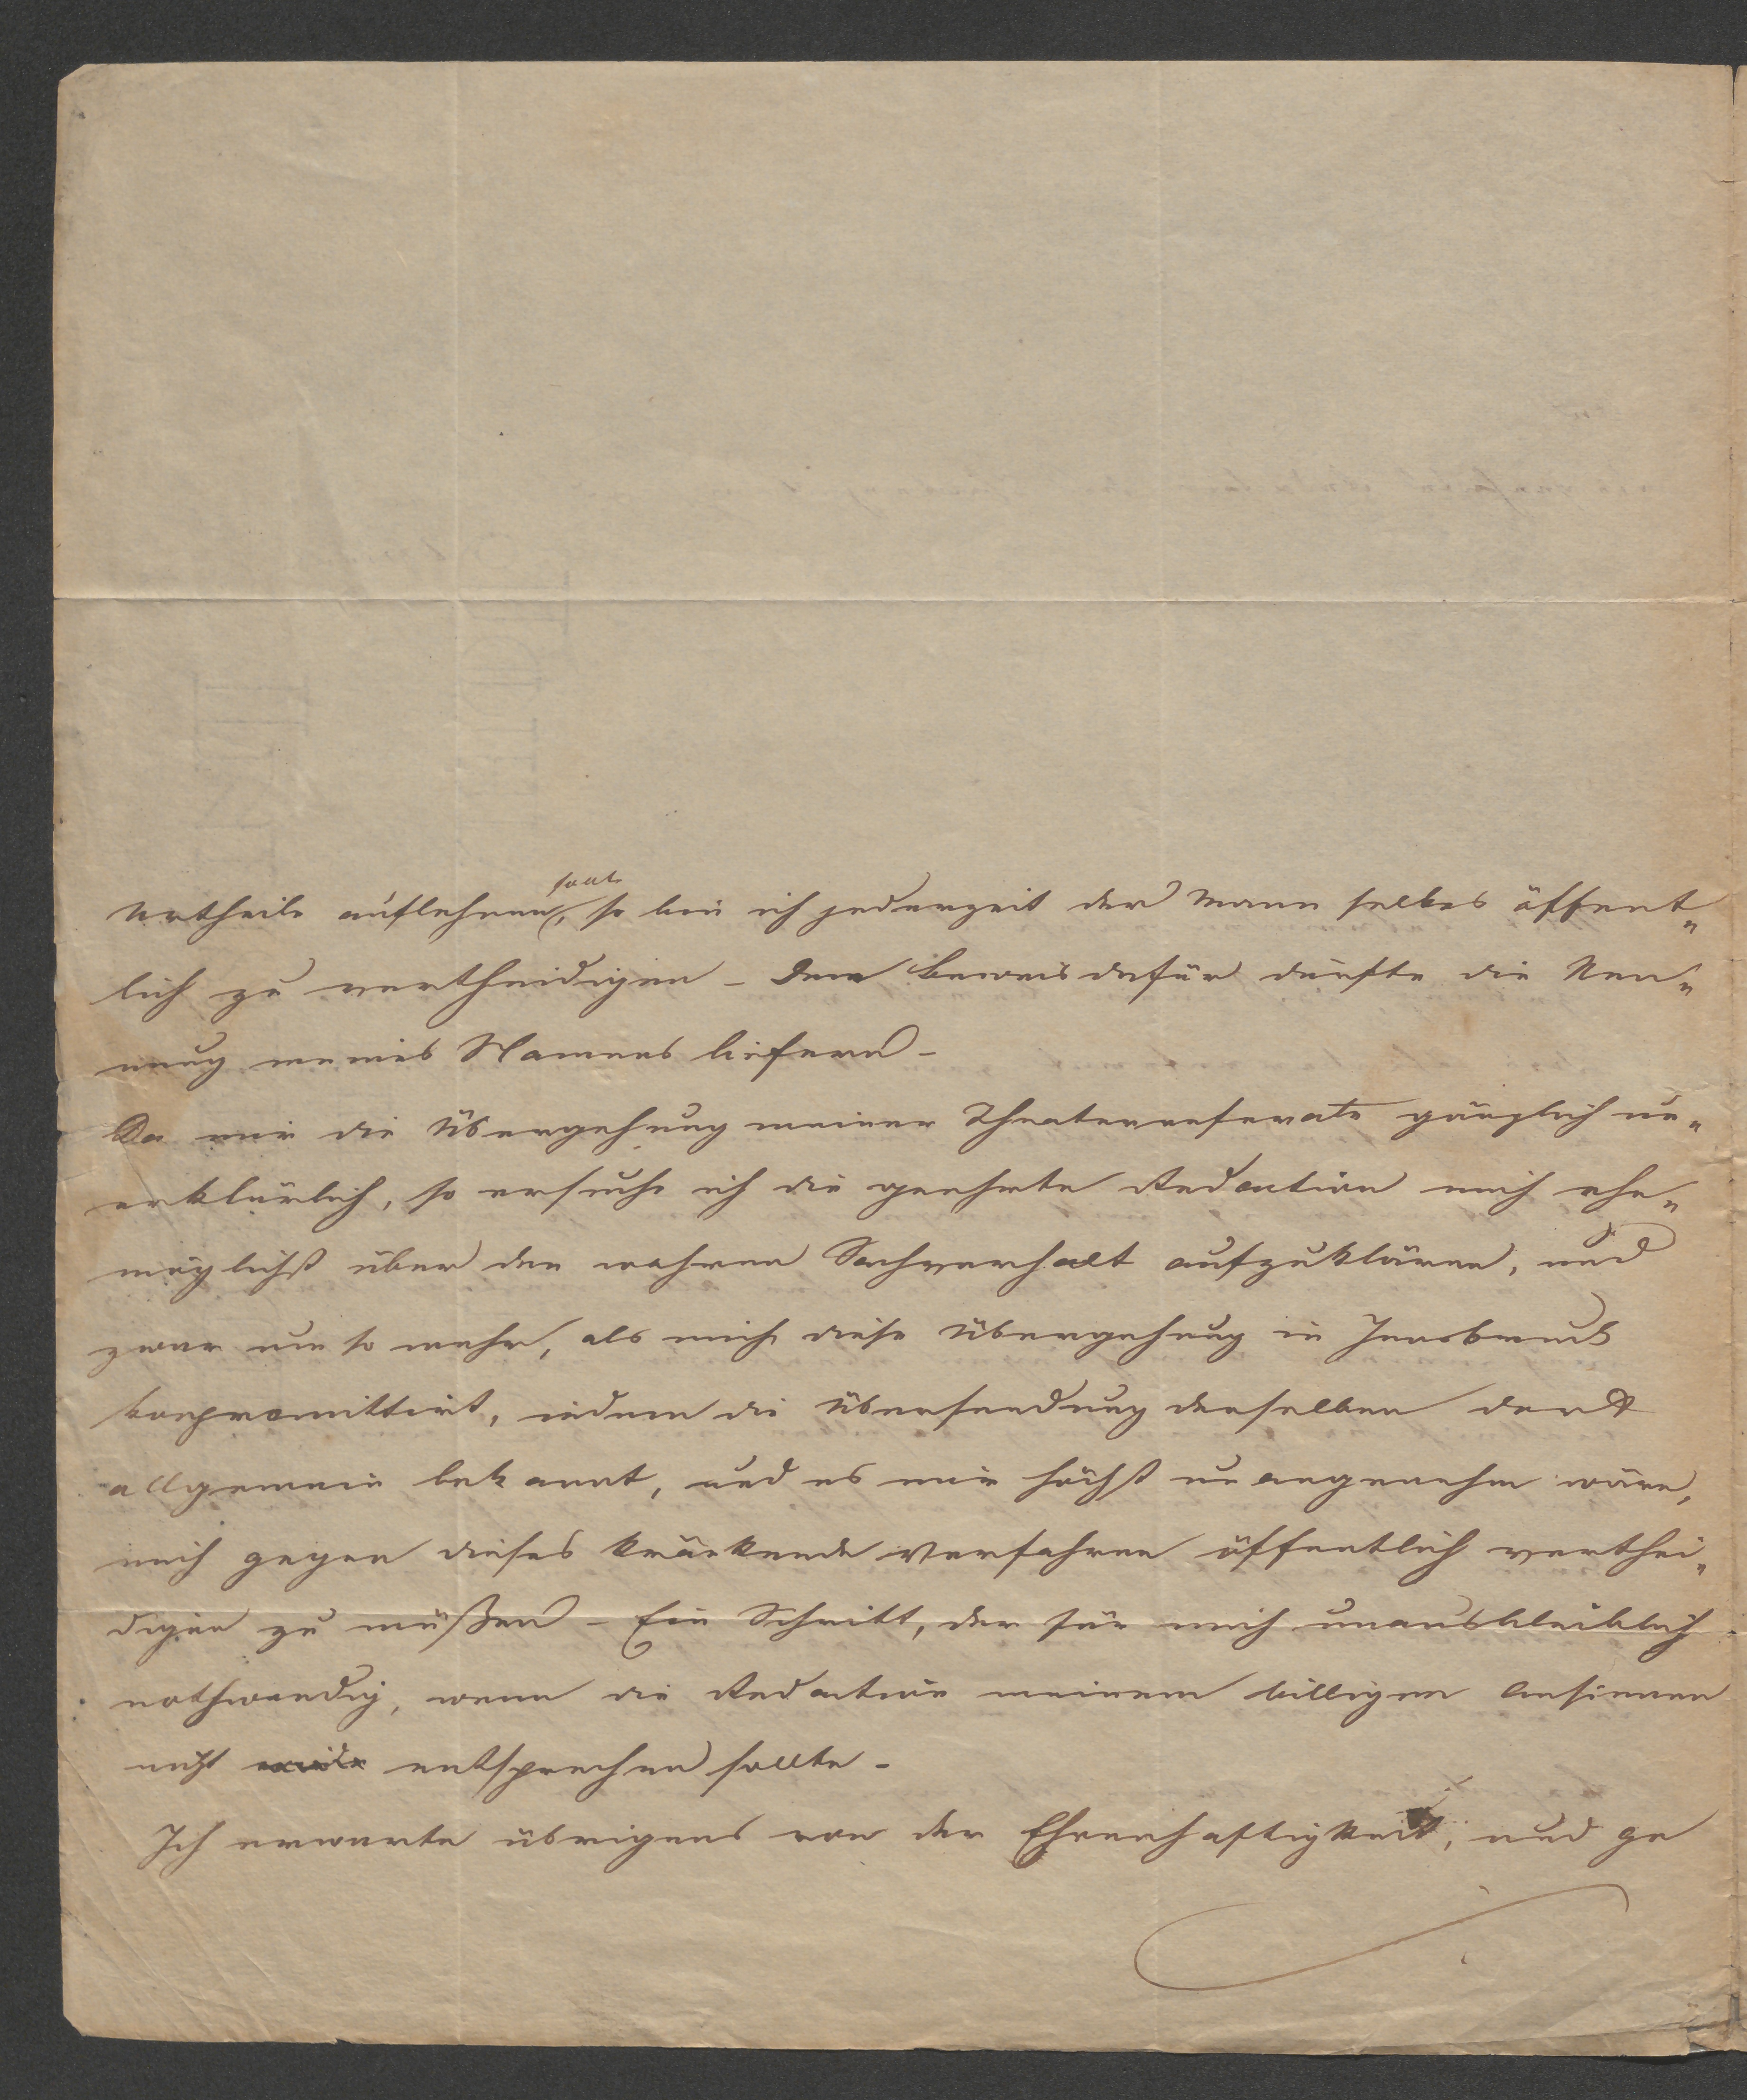 Urtheile auflehnen sollte, so bin ich jederzeit der Mann selbes öffent„
lich zu vertheidigen – Den Beweis dafür dürfte die Nen„
nung meines Namens liefern –
Da mir die Übergehung meiner Theaterreferate gänzlich un„
erklärlich, so ersuche ich die geehrte Redaction mich ehe„
möglichst über den wahren Sachverhalt aufzuklären, und
zwar um so mehr, als mich diese Übergehung in Innsbruck
kompromittirt, indem die Übersendung derselben dort
allgemein bekannt, und es mir höchst unangenehm wäre,
mich gegen dieses kränkende Verfahren öffentlich verthei„
digen zu müßen – Ein Schritt, der für mich unausbleiblich
nothwendig, wenn die Redaction meinem billigen Ansinnen
nicht entsprechen sollte –
Ich erwarte übrigens von der Ehrenhaftigkeit, und ge